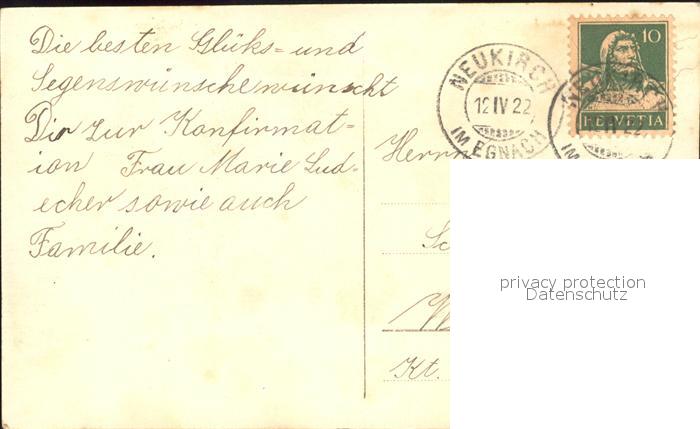 Die besten Glüks= und
Segenswünsche wünscht
Dir zur Konfirmat=
ion Frau Marie Lud=
echer sowie auch
Familie.
NEUKIRCH
12 IV 22
IM EGNACH
10
HELVETIA
Herrn
Kt.
privacy protection
Datenschutz